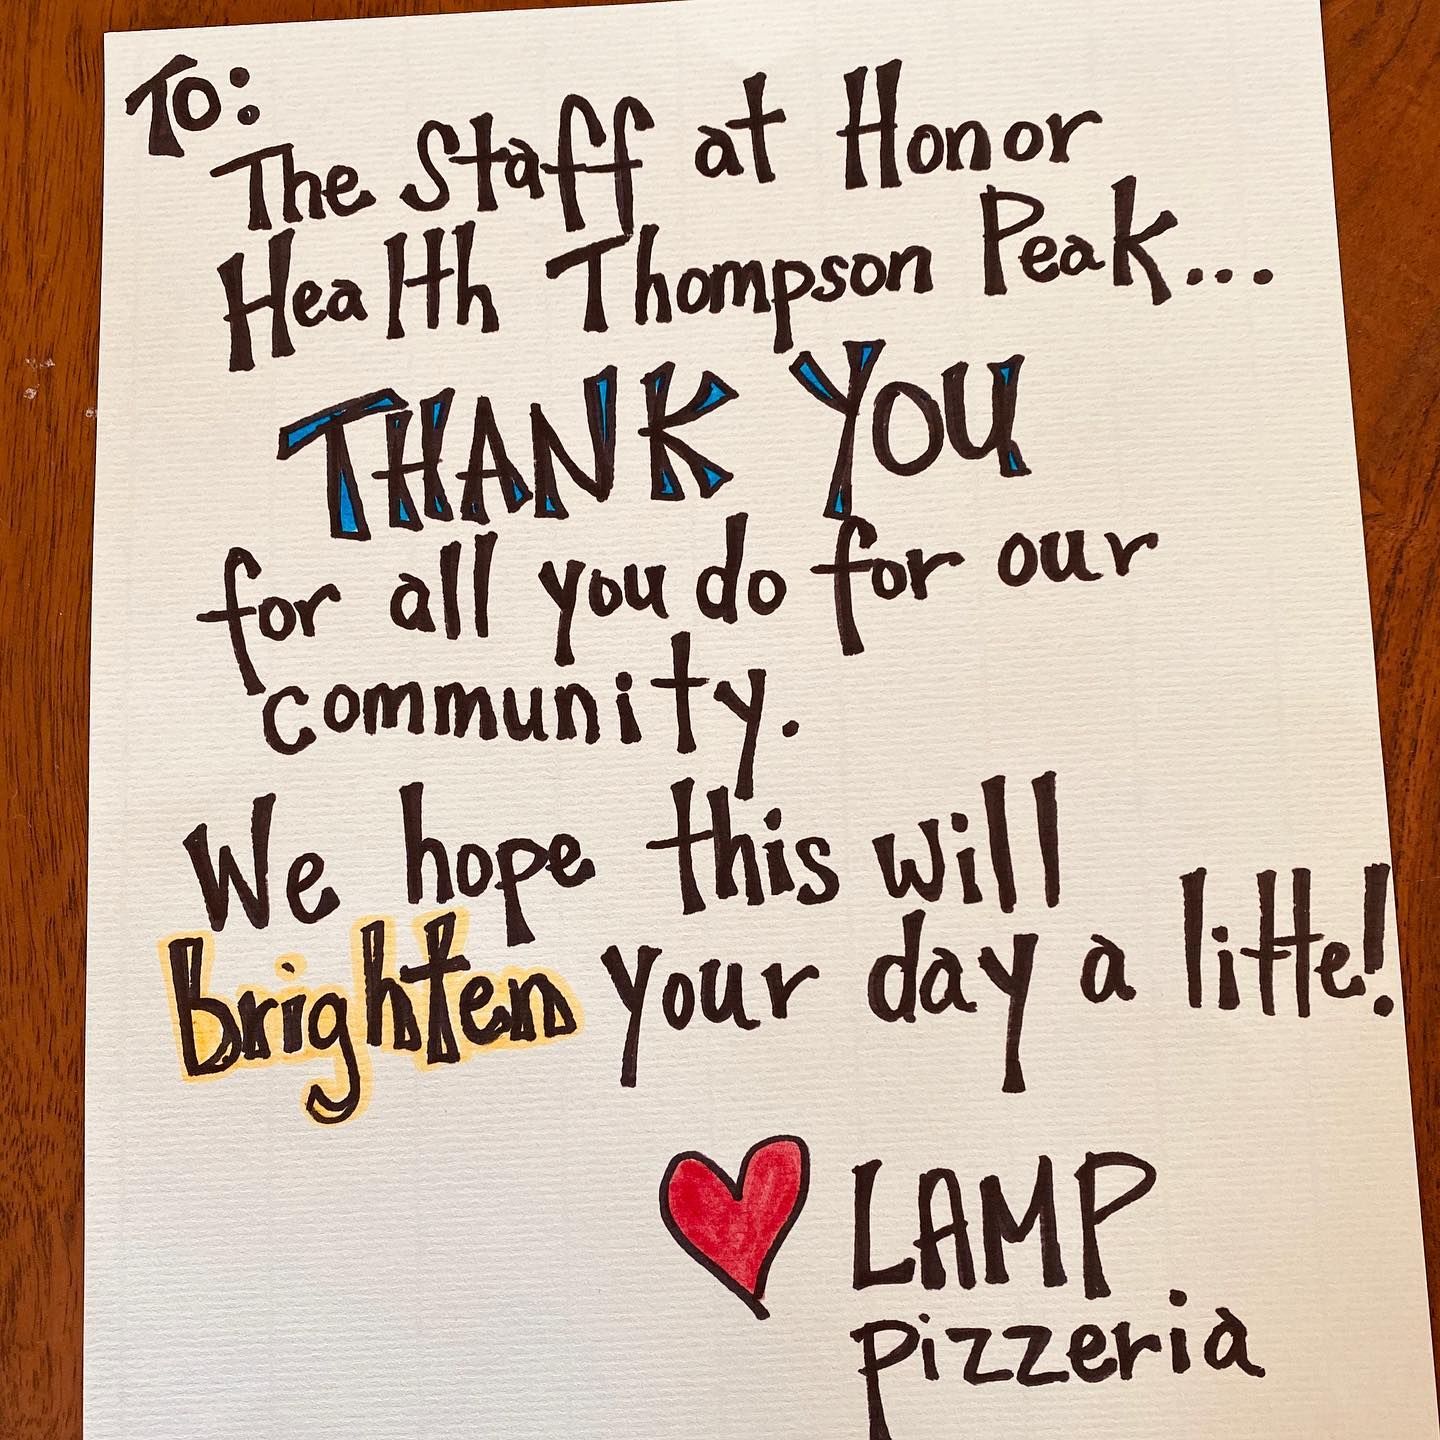 To:
The Staff at Honor
Health Thompson Peak...
THANK YOU
for all you do for our
community.
We hope this will
brighten your day a little!
LAMP
pizzeria